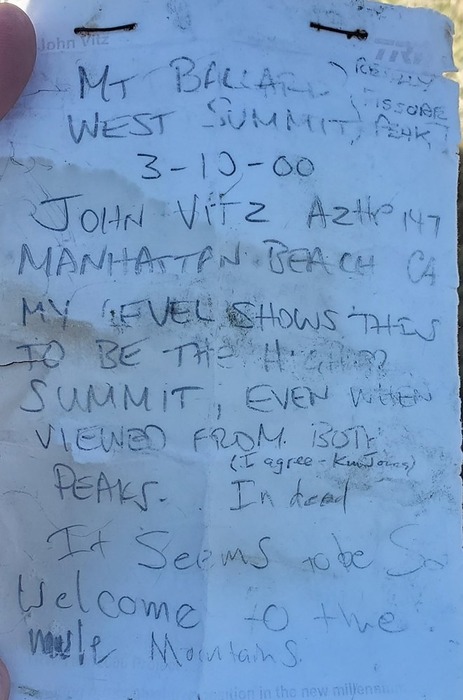 John Vitz TRW
MT BALLARD
WEST SUMMIT,
REALLY
ISSORE
PEAK
3-10-00
JOHN VITZ AZHP 147
MANHATTAN BEACH CA
MY LEVEL SHOWS THIS
TO BE THE HIGHER
SUMMIT, EVEN WHEN
VIEWED FROM BOTH
(I agree - Ken Jones)
PEAKS. Indeed
It Seems to be So
Welcome to the
mule Mountains.
in the new millennium